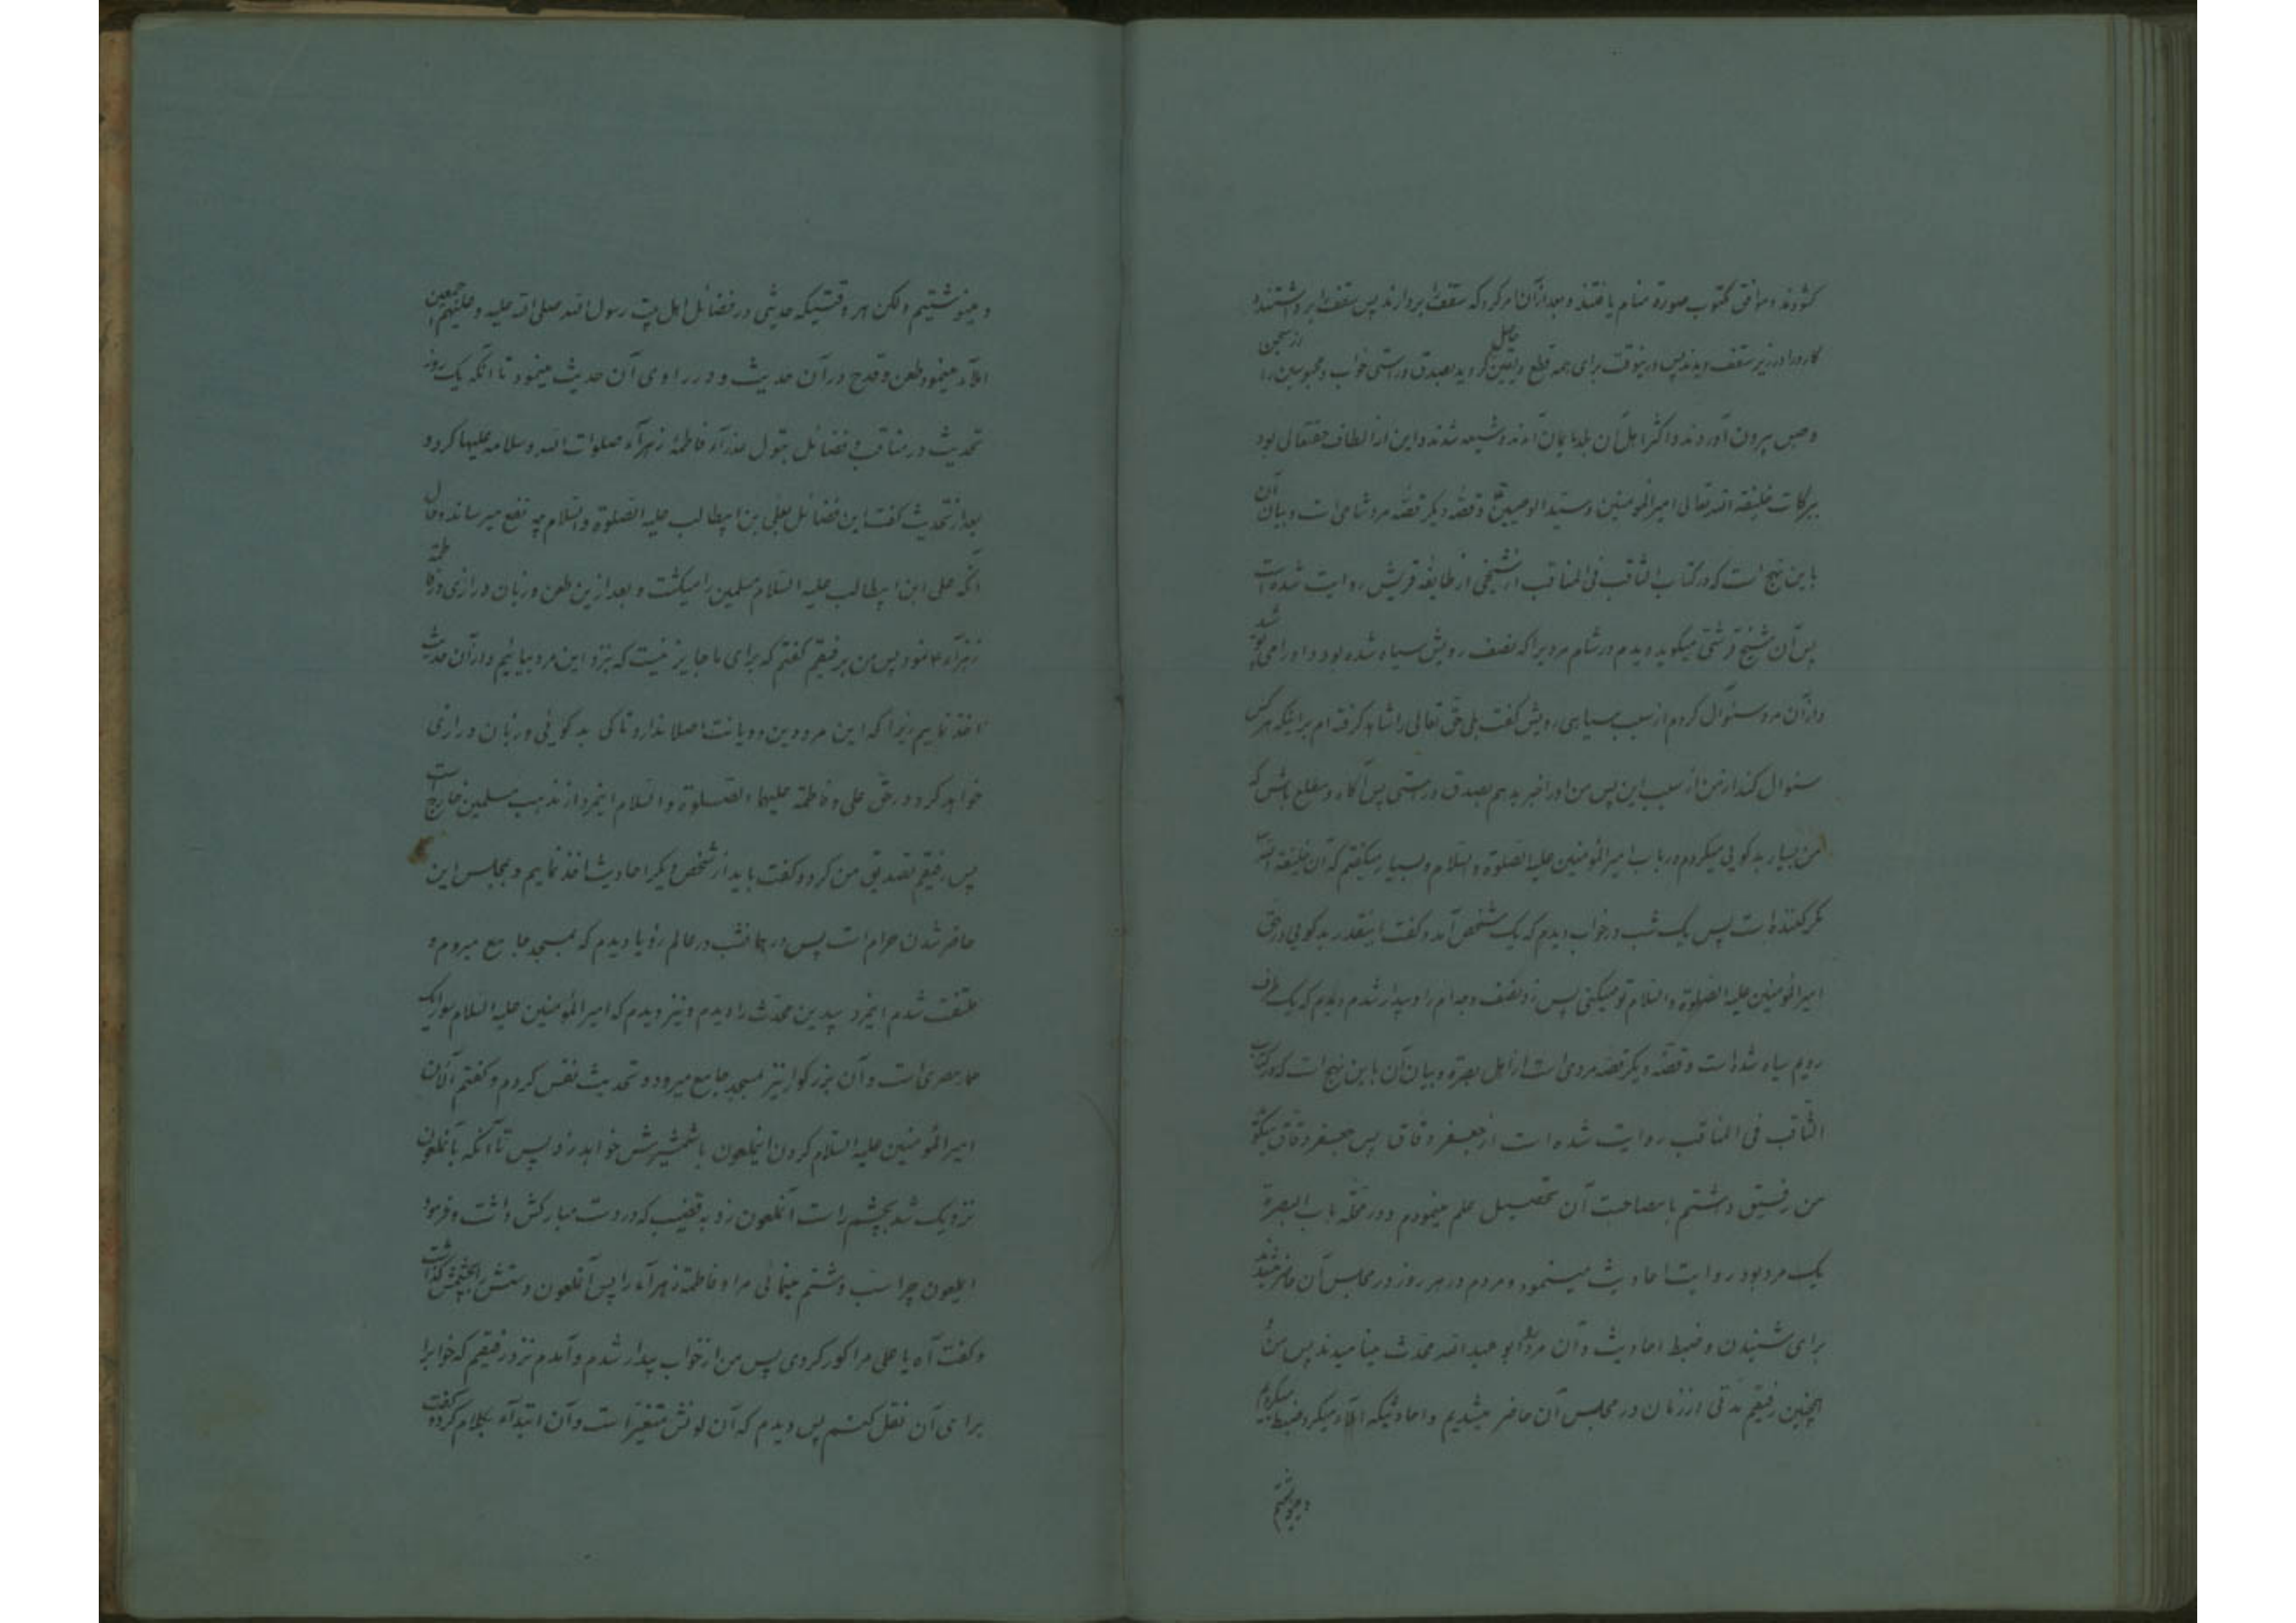 کشودند و موافق مکتوب صورة منام یافتند و بعد از آن امر کرد که سقف را بردارند پس سقف را برداشتند و
کارد را در زیر سقف دیدند پس درینوقت برای همه قطع و یقین حاصل کردید بصدق و راستی خواب و محبوسین را از سجن
و حبس بیرون آوردند و اکثر اهل آن بلد بایمان آمدند و شیعه شدند و این از الطاف حقتعالی بود
ببرکات خلیفة الله تعالی امیرالمومنین و سید الوصیین و قصهٔ دیکر قصهٔ مرد شامی است و بیان آن
باین نهج است که در کتاب الثاقب فی المناقب از شیخی از طایفهٔ قریش روایت شده است
پس آن شیخ قرشی میکوید دیدم در شام مردیرا که نصف رویش سیاه شده بود و او را می پوشید
و از آن مرد سئوال کردم از سبب سیاهی رویش کفت بلی حق تعالی را شاهد کرفته ام براینکه هر کس
سئوال کند از من از سبب این پس من او را خبر بدهم بصدق و راستی پس آکاه و مطلع باش که
من بسیار بدکویی میکردم در باب امیرالمومنین علیه الصلوة و السلام و بسیار میکفتم که آن خلیفه نیست
مکر کننده است پس یک شب در خواب دیدم که یک شخص آمد و کفت اینقدر بدکویی در حق
امیرالمومنین علیه الصلوة و السلام تو میکنی پس زد نصف وجه ام را و بیدار شدم و دیدم که یک طرف
رویم سیاه شده است و قصهٔ دیکر قصهٔ مردی است از اهل بصره و بیان آن باین نهج است که در کتاب
الثاقب فی المناقب روایت شده است از جعفر دقاق پس جعفر دقاق میکوید
من رفیق داشتم با مصاحبت آن تحصیل علم مینمودم و در محلهٔ باب البصرة
یک مرد بود روایت احادیث مینمود و مردم در هر روز در مجلس آن حاضر میشدند
برای شنیدن و ضبط احادیث و آن مرد را ابو عبد الله محدث مینامیدند پس من و
همچنین رفیقم مدتی از زمان در مجلس آن حاضر میشدیم و احادیثیکه املاء میکرد ضبط میکردیم
و مینوشتیم
و مینوشتیم ولکن هر وقتیکه حدیثی در فضائل اهل بیت رسول الله صلی الله علیه و علیهم اجمعین
املاء مینمود طعن و قدح در آن حدیث و در راوی آن حدیث مینمود تا آنکه یک روز
تحدیث در مناقب و فضائل بتول عذراء فاطمهٔ زهراء صلوات الله و سلامه علیها کرد و
بعد از تحدیث کفت این فضائل بعلی بن ابیطالب علیه الصلوة و السلام چه نفع میرساند و حال
آنکه علی ابن ابیطالب علیه السلام مسلمین را میکشت و بعد ازین طعن و زبان درازی در فاطمهٔ
زهراء ع نمود پس من برفیقم کفتم که برای ما جایز نیست که نزد این مرد بیائیم و از آن حدیث
اخذ نماییم زیرا که این مرد دین و دیانت اصلا ندارد تا کی بدکوئی و زبان درازی
خواهد کرد در حق علی و فاطمة علیهما الصلوة و السلام اینمرد از مذهب مسلمین خارج است
پس رفیقم تصدیق من کرد و کفت باید از شخص دیکر احادیث اخذ نماییم و بمجلس این
حاضر شدن حرام است پس در همانشب در عالم رؤیا دیدم که بمسجد جامع میروم و
ملتفت شدم اینمرد بیدین محدث را دیدم و نیز دیدم که امیر المؤمنین علیه السلام سوار یک
حمار مصری است و آن بزرکوار نیز بمسجد جامع میرود و تحدیث نفس کردم و کفتم الآن
امیر المؤمنین علیه السلام کردن اینملعون با شمشیرش خواهد زد پس تا آنکه بآنملعون
نزدیک شد بچشم راست آنملعون زد به قضیب که در دست مبارکش داشت و فرمود
ایملعون چرا سب و شتم مینمائی مرا و فاطمهٔ زهراء را پس آنملعون دستش را بچشمش کذاشت
و کفت آه یا علی مرا کور کردی پس من از خواب بیدار شدم و آمدم نزد رفیقم که خوابرا
برای آن نقل کنم پس دیدم که آن لونش متغیر است و آن ابتداء بکلام کرده کفت